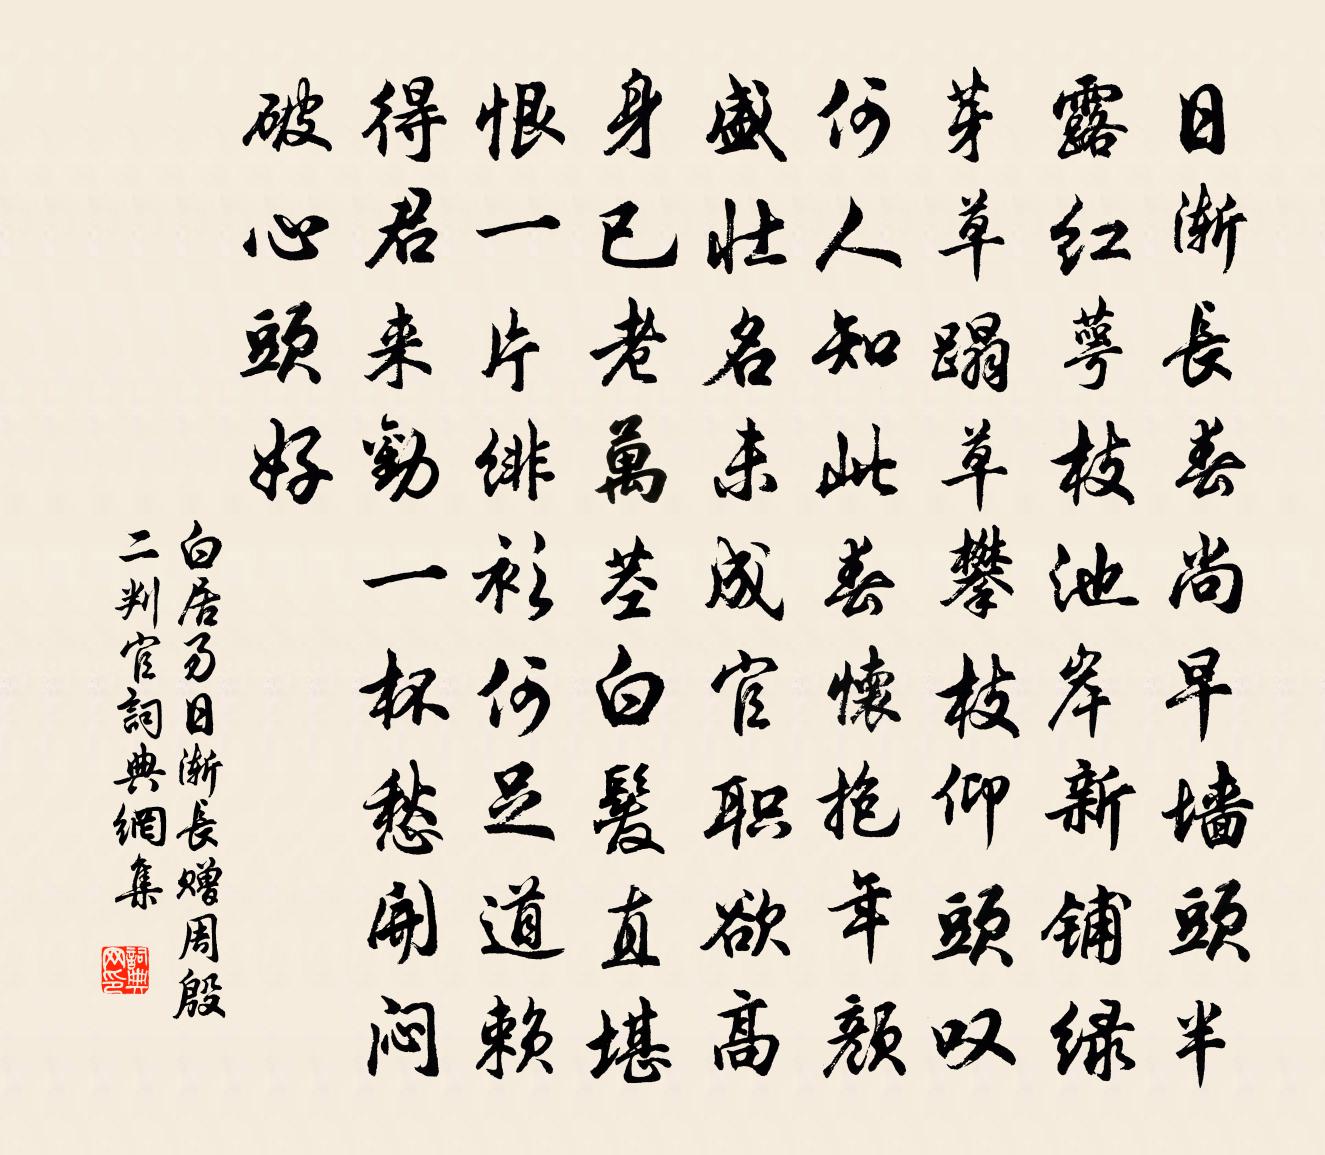 日漸長春尚早墙頭半
露红萼枝池岸新铺绿
芽草蹋草攀枝仰頭叹
何人知此春懷抱年颜
盛壮名未成官职欲高
身已老萬茎白髮直堪
恨一片绯衫何足道赖
得君来勸一杯愁開闷
破心頭好
白居易日漸長赠周殷
二判官詞典網集
詞典
网印